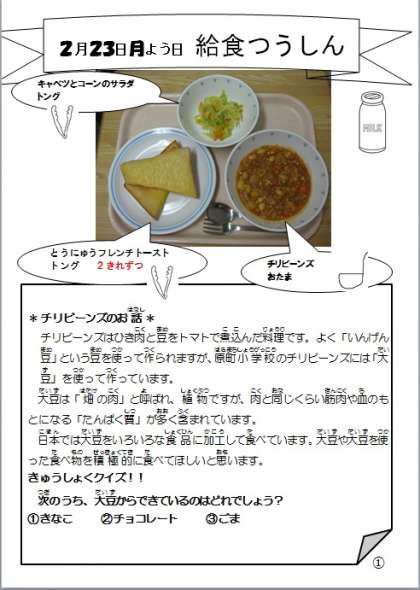 2月23日月よう日 給食つうしん
キャベツとコーンのサラダ
トング
MILK
とうにゅうフレンチトースト
トング 2きれずつ
チリビーンズ
おたま
＊チリビーンズのお話＊
チリビーンズはひき肉と豆をトマトで煮込んだ料理です。よく「いんげん
豆」という豆を使って作られますが、原町小学校のチリビーンズには「大
豆」を使って作っています。
大豆は「畑の肉」と呼ばれ、植物ですが、肉と同じくらい筋肉や血のも
とになる「たんぱく質」が多く含まれています。
日本では大豆をいろいろな食品に加工して食べています。大豆や大豆を使
った食べ物を積極的に食べてほしいと思います。
きゅうしょくクイズ！！
次のうち、大豆からできているのはどれでしょう？
①きなこ ②チョコレート ③ごま
①